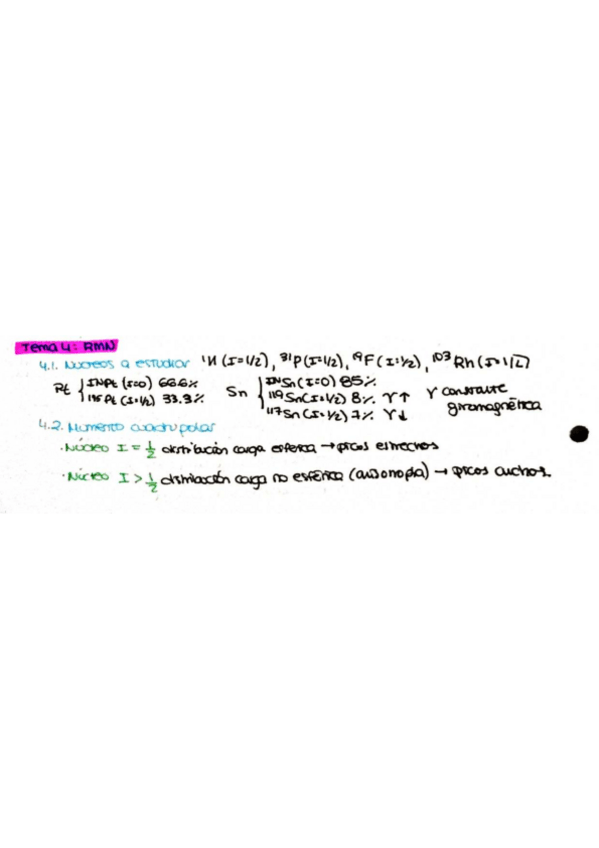 Tema 4: RMN
4.1. Núcleos a estudiar ¹H (I=1/2), ³¹P (I=1/2), ¹⁹F (I=1/2), ¹⁰³Rh (I=1/2)
Pt { INPt (I=0) 66.6% Sn { INSn (I=0) 85%
¹⁹⁵Pt (I=1/2) 33.3% ¹¹⁹Sn (I=1/2) 8% γ↑ γ constante
¹¹⁷Sn (I=1/2) 7% γ↓ giromagnética
4.2. Momento cuadrupolar
· Núcleo I = 1/2 distribución carga esférica → picos estrechos
· Núcleo I > 1/2 distribución carga no esférica (anisotropía) → picos anchos.